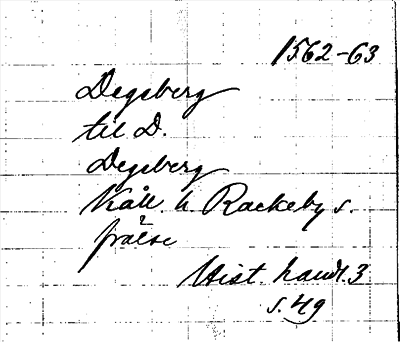 1562-63
Degeberg
til D.
Degeberg
Kåll. h. Rackeby s.
frälse
Hist. handl. 3
s. 49